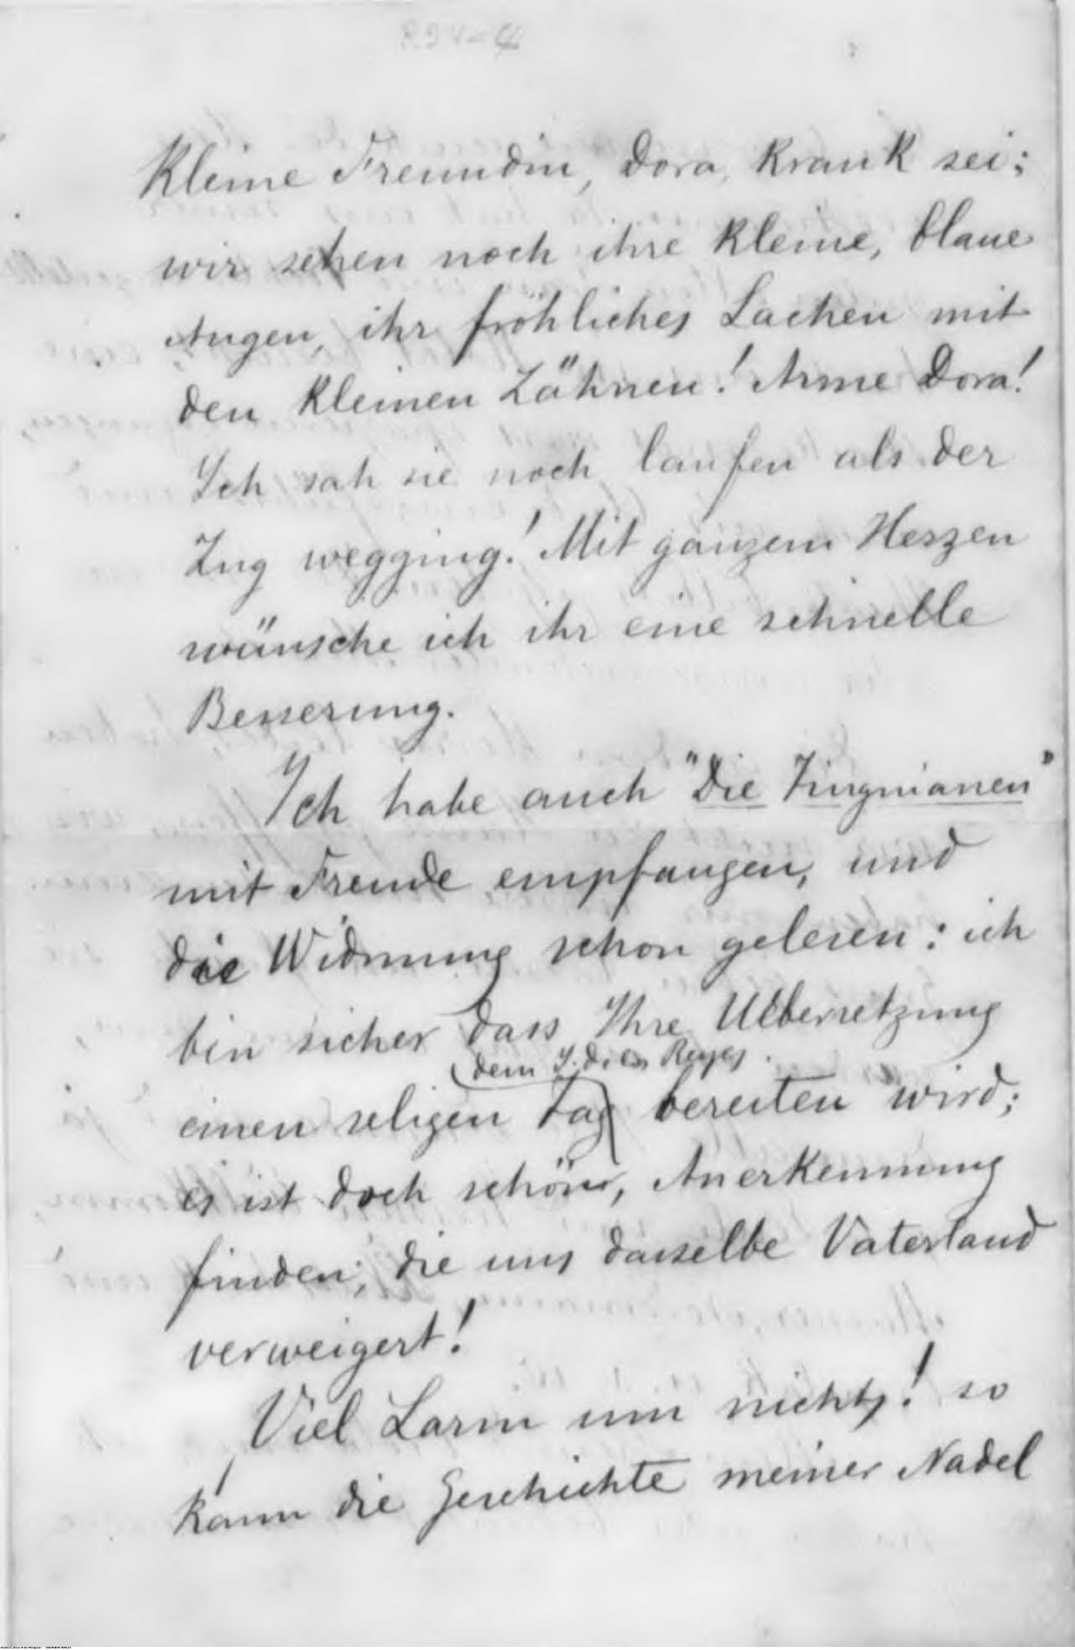 kleine Freundin, Dora, krank sei;
wir sehen noch ihre kleine, blaue
Augen, ihr fröhliches Lachen mit
den kleinen Zähnen! Arme Dora!
Ich sah sie noch laufen als der
Zug wegging! Mit ganzem Herzen
wünsche ich ihr eine schnelle
Besserung.
Ich habe auch "Die Tinguianen"
mit Freude empfangen, und
die Widmung schon gelesen: ich
bin sicher dass Ihre Uebersetzung
dem I. de los Reyes
einen seligen Tag bereiten wird;
es ist doch schön, Anerkennung
finden, die uns dasselbe Vaterland
verweigert!
Viel Larm um nichts! so
kann die Geschichte meiner Nadel